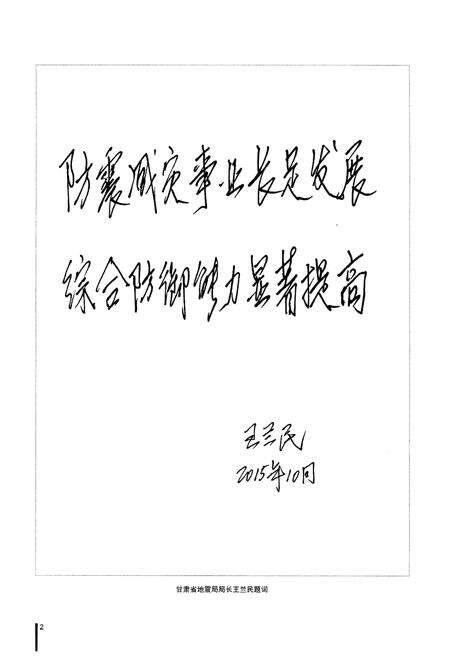 防震减灾事业长足发展
综合防御能力显著提高
王兰民
2015年10月
甘肃省地震局局长王兰民题词
2